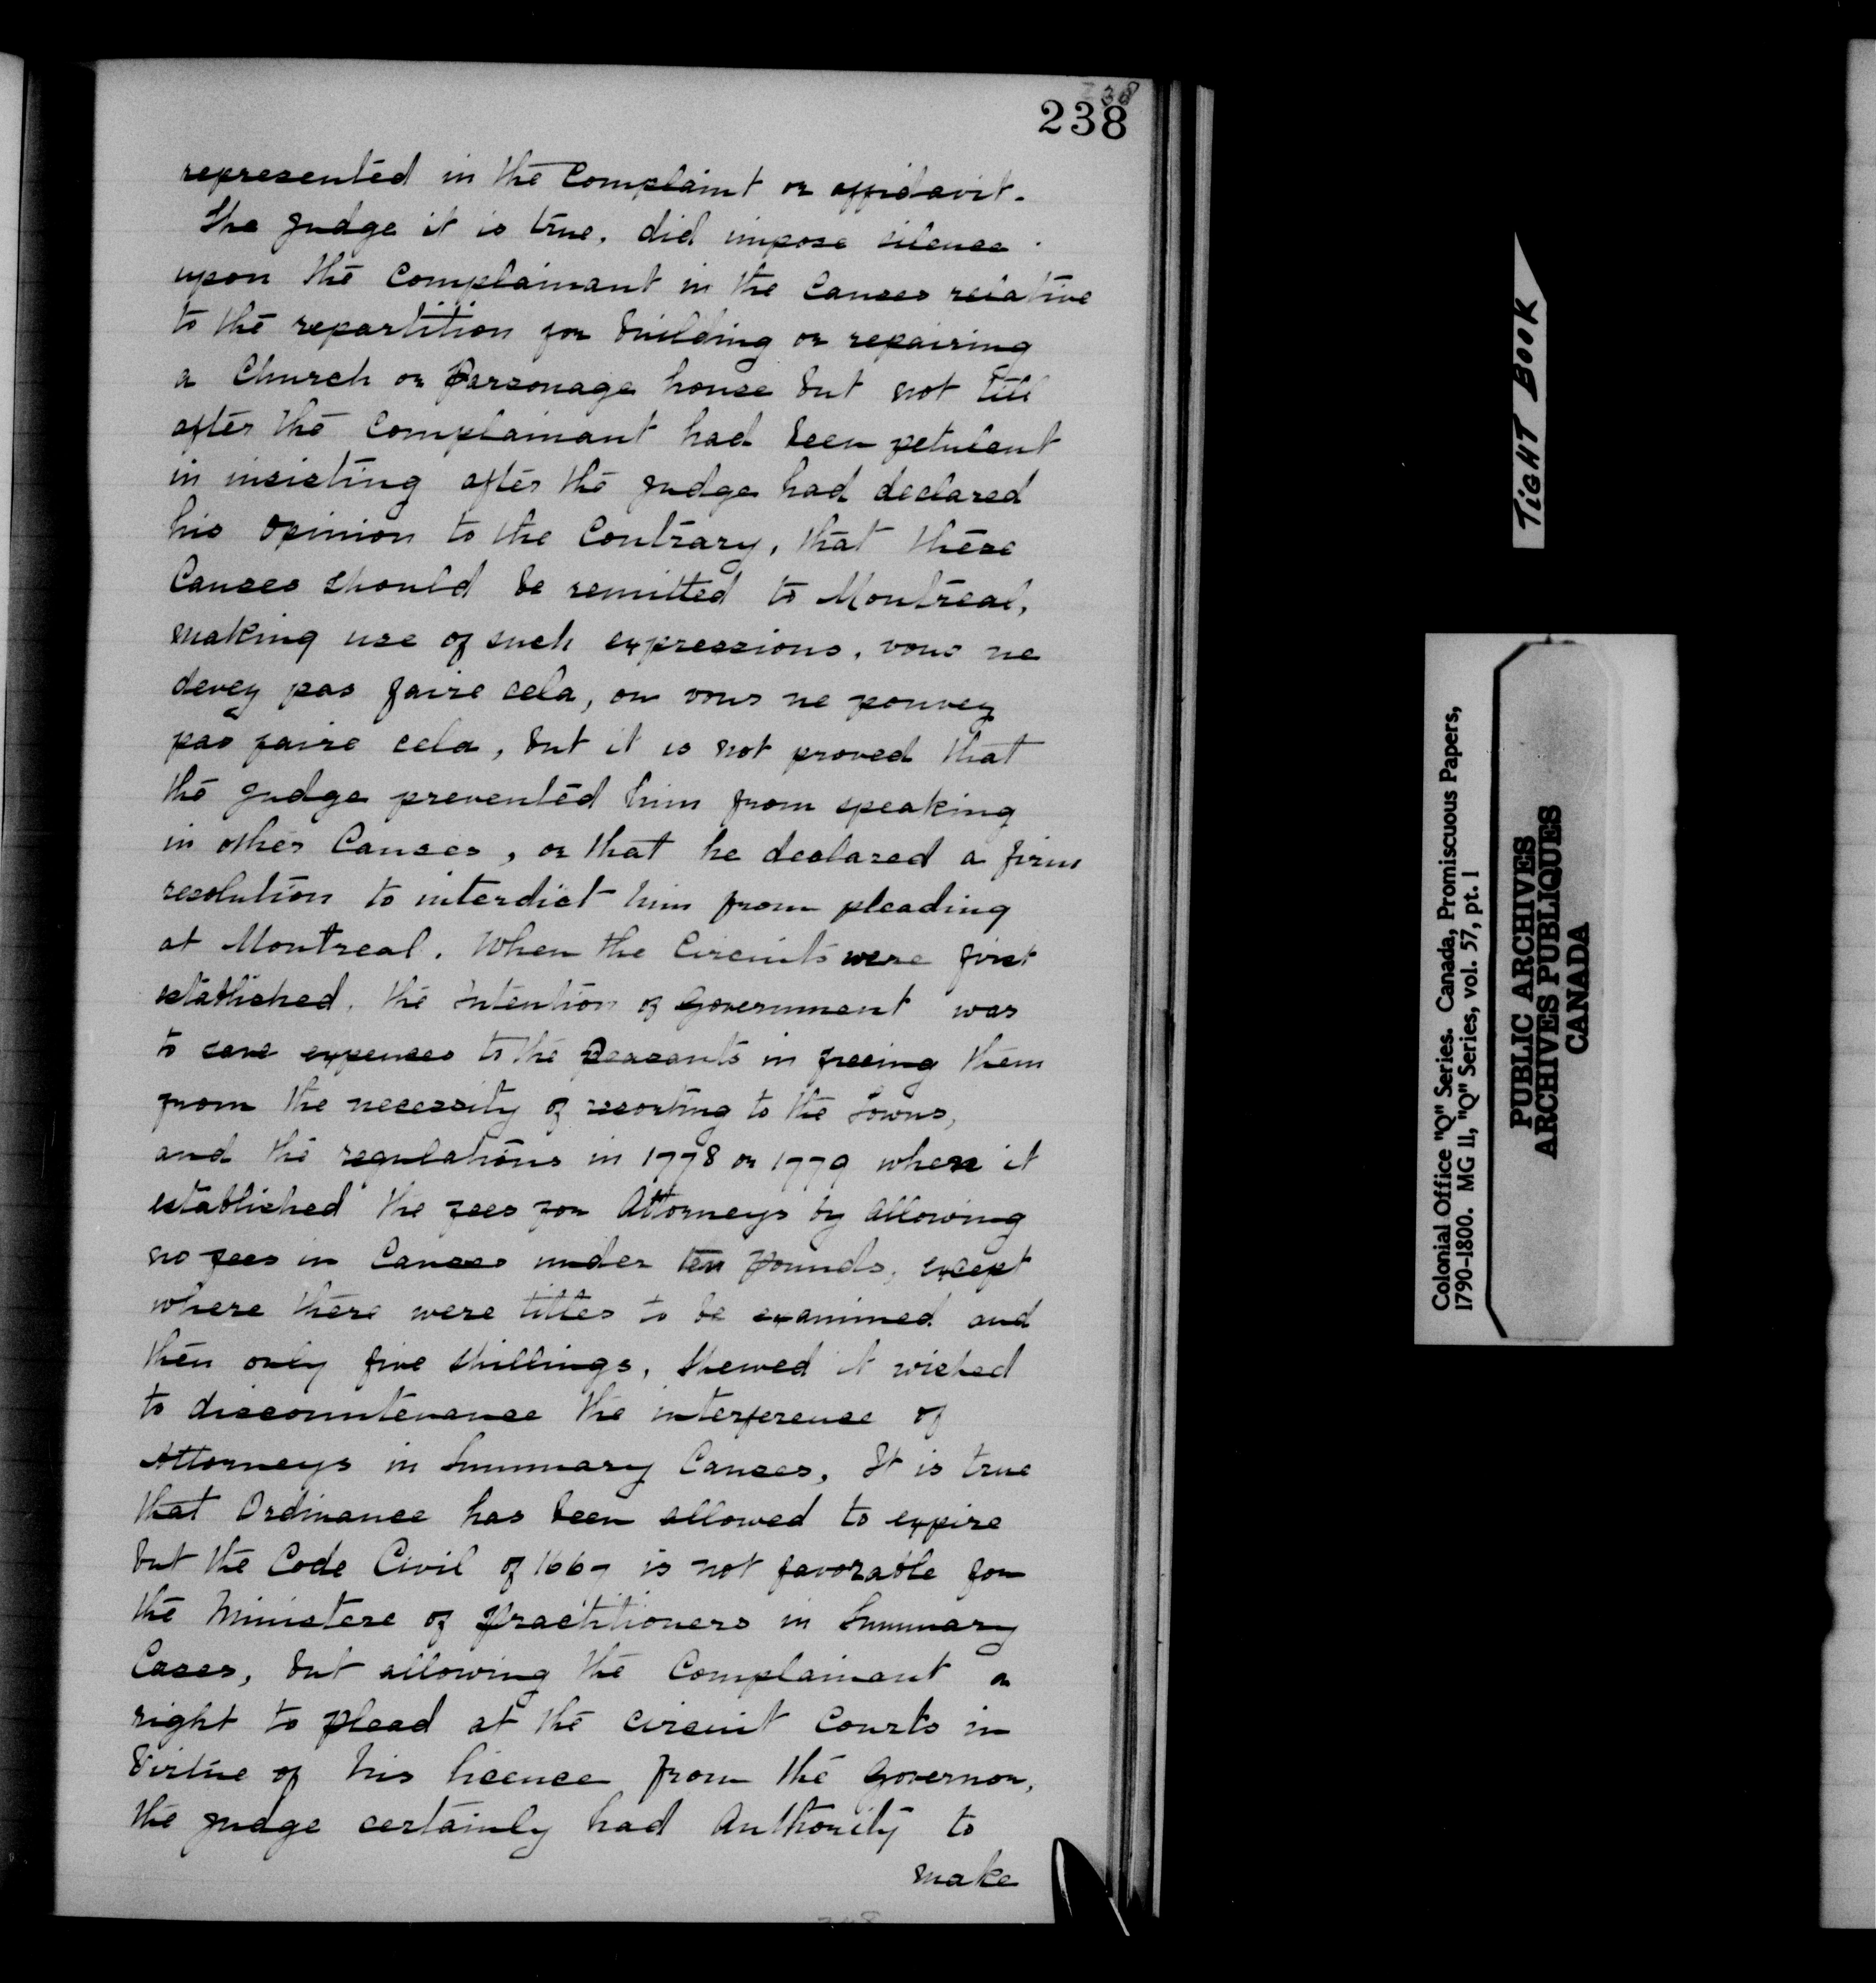 238
238
represented in the Complaint or affidavit.
The Judge it is true, did impose silence
upon the Complainant in the Causes relative
to the repartition for building or repairing
a Church or Parsonage house but not till
after the Complainant had been petulent
in insisting after the Judge had declared
his Opinion to the Contrary, that these
Causes should be remitted to Montreal,
making use of such expressions, vous ne
devez pas faire cela, ou vous ne pouvez
pas faire cela, but it is not proved that
the Judge prevented him from speaking
in other Causes, or that he declared a firm
resolution to interdict him from pleading
at Montreal. When the Circuits were first
established, the Intention of Government was
to save expenses to the Peasants in freeing them
from the necessity of resorting to the Towns,
and the regulations in 1778 or 1779 where it
established the fees for Attorneys by allowing
no fees in Causes under ten Pounds, except
where there were titles to be examined and
then only five shillings, shewed it wished
to discountenance the interference of
Attorneys in Summary Causes, It is true
that Ordinance has been allowed to expire
but the Code Civil of 1667 is not favorable for
the Ministere of Practitioners in Summary
Cases, but allowing the Complainant a
right to plead at the circuit Courts in
Virtue of his licence from the Governor,
the Judge certainly had Authority to
make
TIGHT BOOK
Colonial Office "Q" Series. Canada, Promiscuous Papers,
1790-1800. MG 11, "Q" Series, vol. 57, pt. 1
PUBLIC ARCHIVES
ARCHIVES PUBLIQUES
CANADA